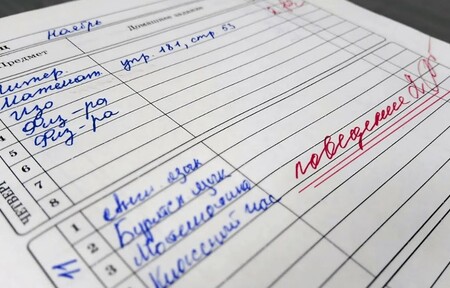 Ноябрь
Предмет Домашнее задание
Литер.
Математ. упр. 181, стр 53
Изо
4 Физ-ра
5 Физ-ра
6
7
8
поведение 2
ЧЕТВЕРГ
11
1 Англ. язык
2 Бурятск язык
3 Математика
4 Классный час